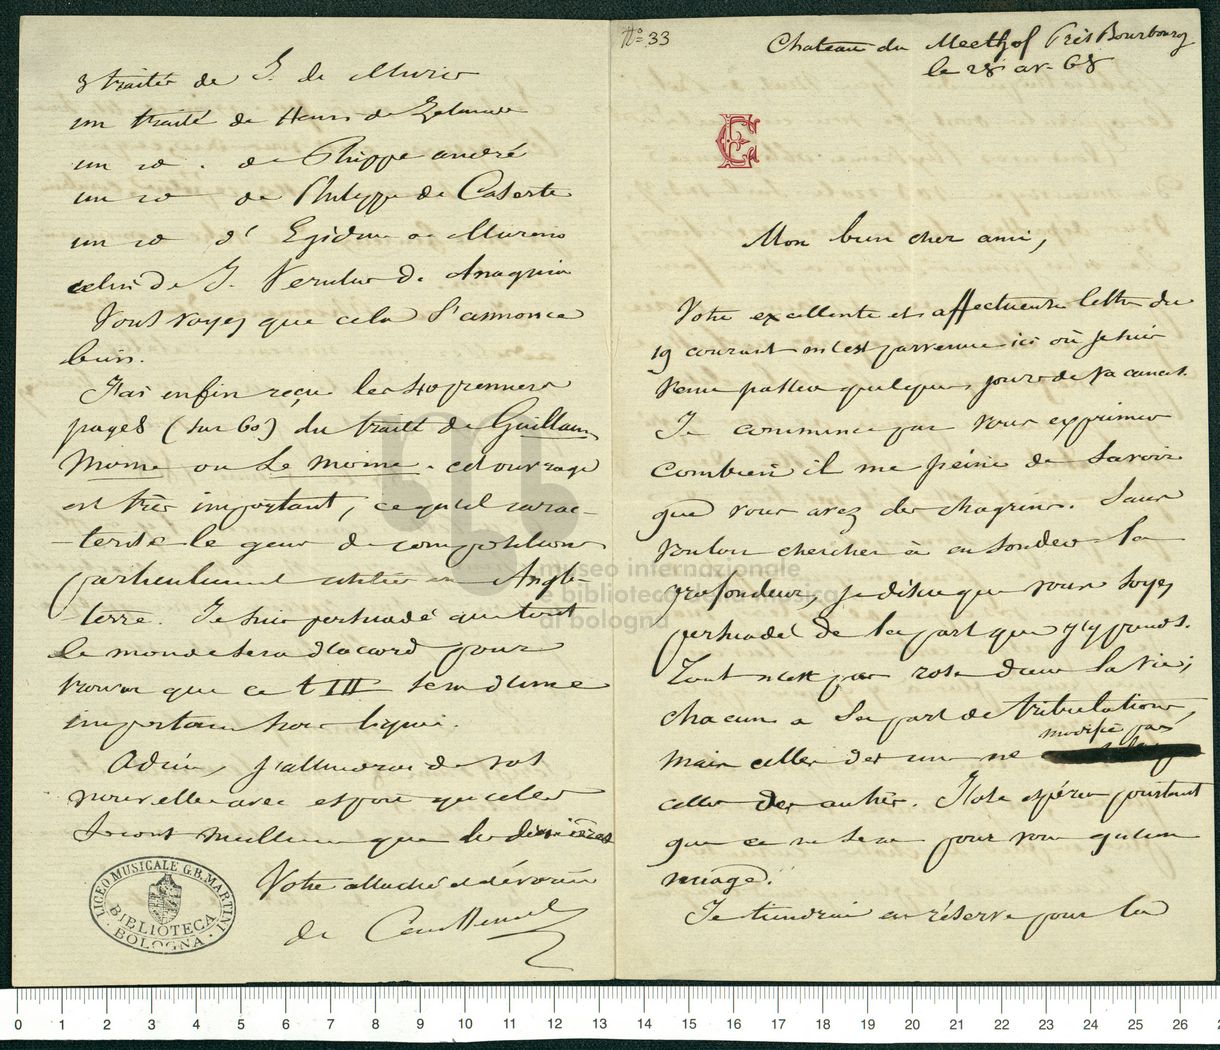 N° 33
Chateau du Meethof Près Bourbourg
le 28 av. 68
Mon bien cher ami,
Votre excellente et affectueuse lettre du
19 courant m'est parvenue ici où je suis
venu passer quelques jours de vacances.
Je commence par vous exprimer
combien il me peine de savoir
que vous avez des chagrins. Sans
vouloir chercher à en sonder la
profondeur, je dis que vous soyez
persuadé de la part que j'y prends.
Tout n'est pas rose dans la vie;
chacun a sa part de tribulations,
mais celles des uns ne modifie pas
celles des autres. J'ose espérer pourtant
que ce ne sera pour vous qu'un
nuage.
Je tiendrai en réserve pour la
3 traités de J. de Muris
un traité de Henri de Zelande
un id. de Philippe andré
un id de Philippe de Caserte
un id d' Egidius de Murino
celui de J. Verulus de Anagnia
Vous voyez que cela s'annonce
bien.
J'ai enfin reçu les 40 premieres
pages (sur 60) du traité de Guillaume
Moine ou Le moine. cet ouvrage
est très important, ce qu'il carac-
-terise le genre de compositions
particulierement usitées en Angle-
-terre. Je suis persuadé que tout
le monde sera d'accord pour
trouver que ce t III sera d'une
importance hors ligne.
Adieu, j'attendrai de vos
nouvelles avec espoir qu'elles
seront meilleures que les dernières
Votre attaché et dévoué
de Coussemaker
LICEO MUSICALE G.B. MARTINI
BIBLIOTECA
BOLOGNA
museo internazionale
e biblioteca della musica
di bologna
0 1 2 3 4 5 6 7 8 9 10 11 12 13 14 15 16 17 18 19 20 21 22 23 24 25 26